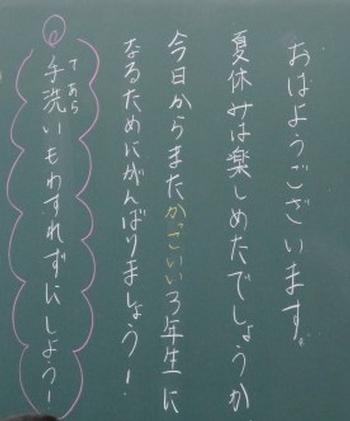 おはようございます。
夏休みは楽しめたでしょうか
今日からまたかっこいい3年生に
なるためにがんばりましょう!
手洗いもわすれずにしよう!
てあら